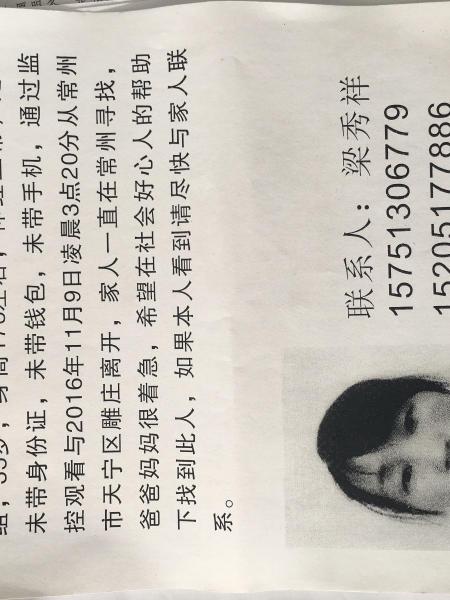 组，35岁，身高175左右，
未带身份证，未带钱包，未带手机，通过监
控观看与2016年11月9日凌晨3点20分从常州
市天宁区雕庄离开，家人一直在常州寻找，
爸爸妈妈很着急，希望在社会好心人的帮助
下找到此人，如果本人看到请尽快与家人联
系。
联系人：梁秀祥
15751306779
15205177886